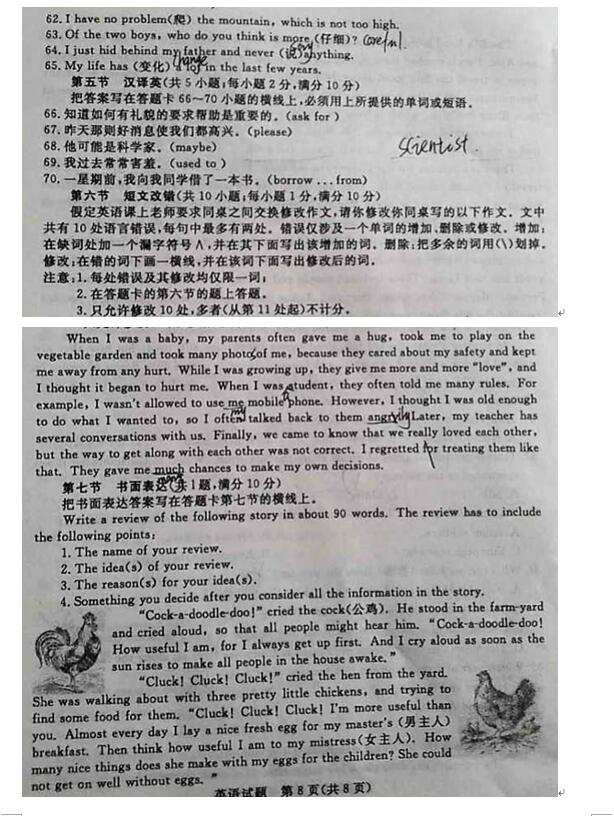 62. I have no problem(爬) the mountain, which is not too high.
63. Of the two boys, who do you think is more (仔细)? careful.
64. I just hid behind my father and never (说) anything.
65. My life has (变化) a lot in the last few years.
change
第五节 汉译英(共5小题;每小题2分,满分10分)
把答案写在答题卡66~70小题的横线上,必须用上所提供的单词或短语。
66. 知道如何有礼貌的要求帮助是重要的。(ask for )
67. 昨天那则好消息使我们都高兴。(please)
68. 他可能是科学家。(maybe)
scientist.
69. 我过去常常害羞。(used to )
70. 一星期前,我向我同学借了一本书。(borrow ... from)
第六节 短文改错(共10小题;每小题1分,满分10分)
假定英语课上老师要求同桌之间交换修改作文,请你修改你同桌写的以下作文。文中
共有10处语言错误,每句中最多有两处。错误仅涉及一个单词的增加、删除或修改。增加:
在缺词处加一个漏字符号∧,并在其下面写出该增加的词。删除:把多余的词用(\)划掉。
修改:在错的词下画一横线,并在该词下面写出修改后的词。
注意:1. 每处错误及其修改均仅限一词;
2. 在答题卡的第六节的题上答题。
3. 只允许修改10处,多者(从第11处起)不计分。
When I was a baby, my parents often gave me a hug, took me to play on the
vegetable garden and took many photo of me, because they cared about my safety and kept
me away from any hurt. While I was growing up, they give me more and more “love”, and
I thought it began to hurt me. When I was student, they often told me many rules. For
example, I wasn't allowed to use me mobile phone. However, I thought I was old enough
my
to do what I wanted to, so I often talked back to them angry. Later, my teacher has
several conversations with us. Finally, we came to know that we really loved each other,
but the way to get along with each other was not correct. I regretted for treating them like
that. They gave me much chances to make my own decisions.
第七节 书面表达(共1题,满分10分)
把书面表达答案写在答题卡第七节的横线上。
Write a review of the following story in about 90 words. The review has to include
the following points:
1. The name of your review.
2. The idea(s) of your review.
3. The reason(s) for your idea(s).
4. Something you decide after you consider all the information in the story.
“Cock-a-doodle-doo!” cried the cock(公鸡). He stood in the farm-yard
and cried aloud, so that all people might hear him. “Cock-a-doodle-doo!
How useful I am, for I always get up first. And I cry aloud as soon as the
sun rises to make all people in the house awake.”
“Cluck! Cluck! Cluck!” cried the hen from the yard.
She was walking about with three pretty little chickens, and trying to
find some food for them. “Cluck! Cluck! Cluck! I'm more useful than
you. Almost every day I lay a nice fresh egg for my master's (男主人)
breakfast. Then think how useful I am to my mistress(女主人). How
many nice things does she make with my eggs for the children? She could
not get on well without eggs.”
英语试题 第8页(共8页)